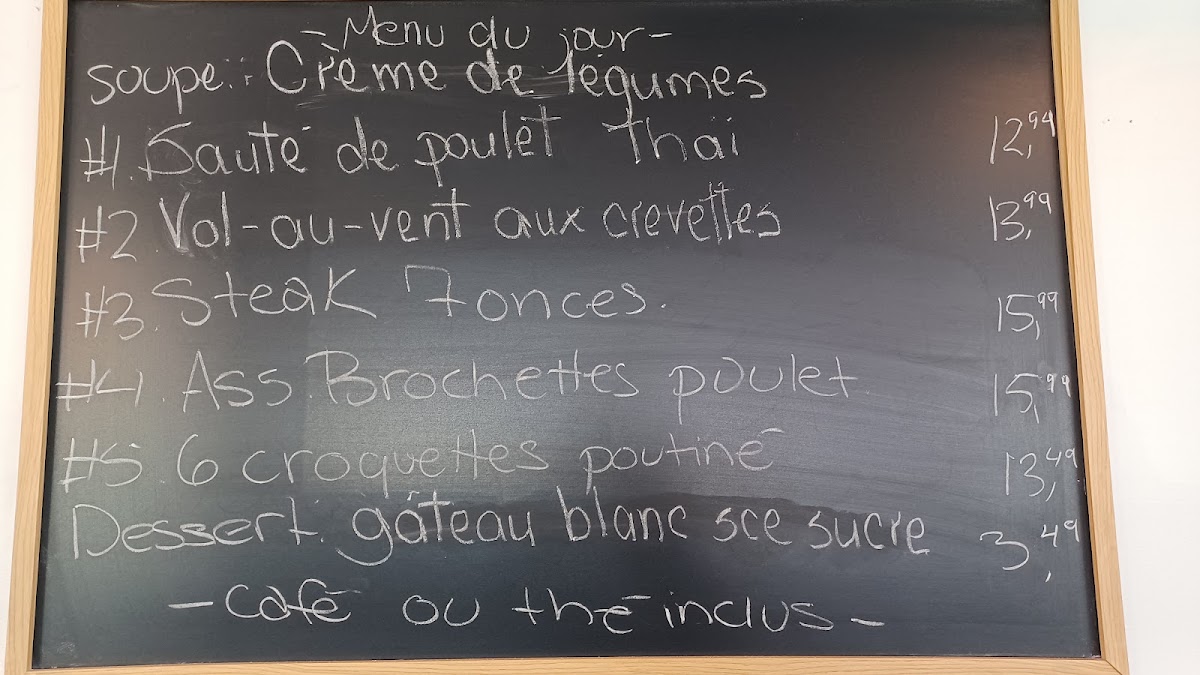 - Menu du jour -
soupe: Crème de légumes
#1. Sauté de poulet thaï 12,94
#2 Vol-au-vent aux crevettes 13,99
#3. Steak 7 onces. 15,99
#4. Ass. Brochettes poulet 15,99
#5. 6 croquettes poutine 13,49
Dessert: gâteau blanc sce sucre 3,49
- café ou thé inclus -